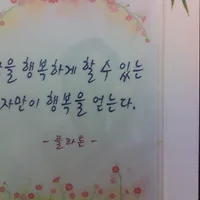 을 행복하게 할 수 있는
자만이 행복을 얻는다.
- 플라톤 -